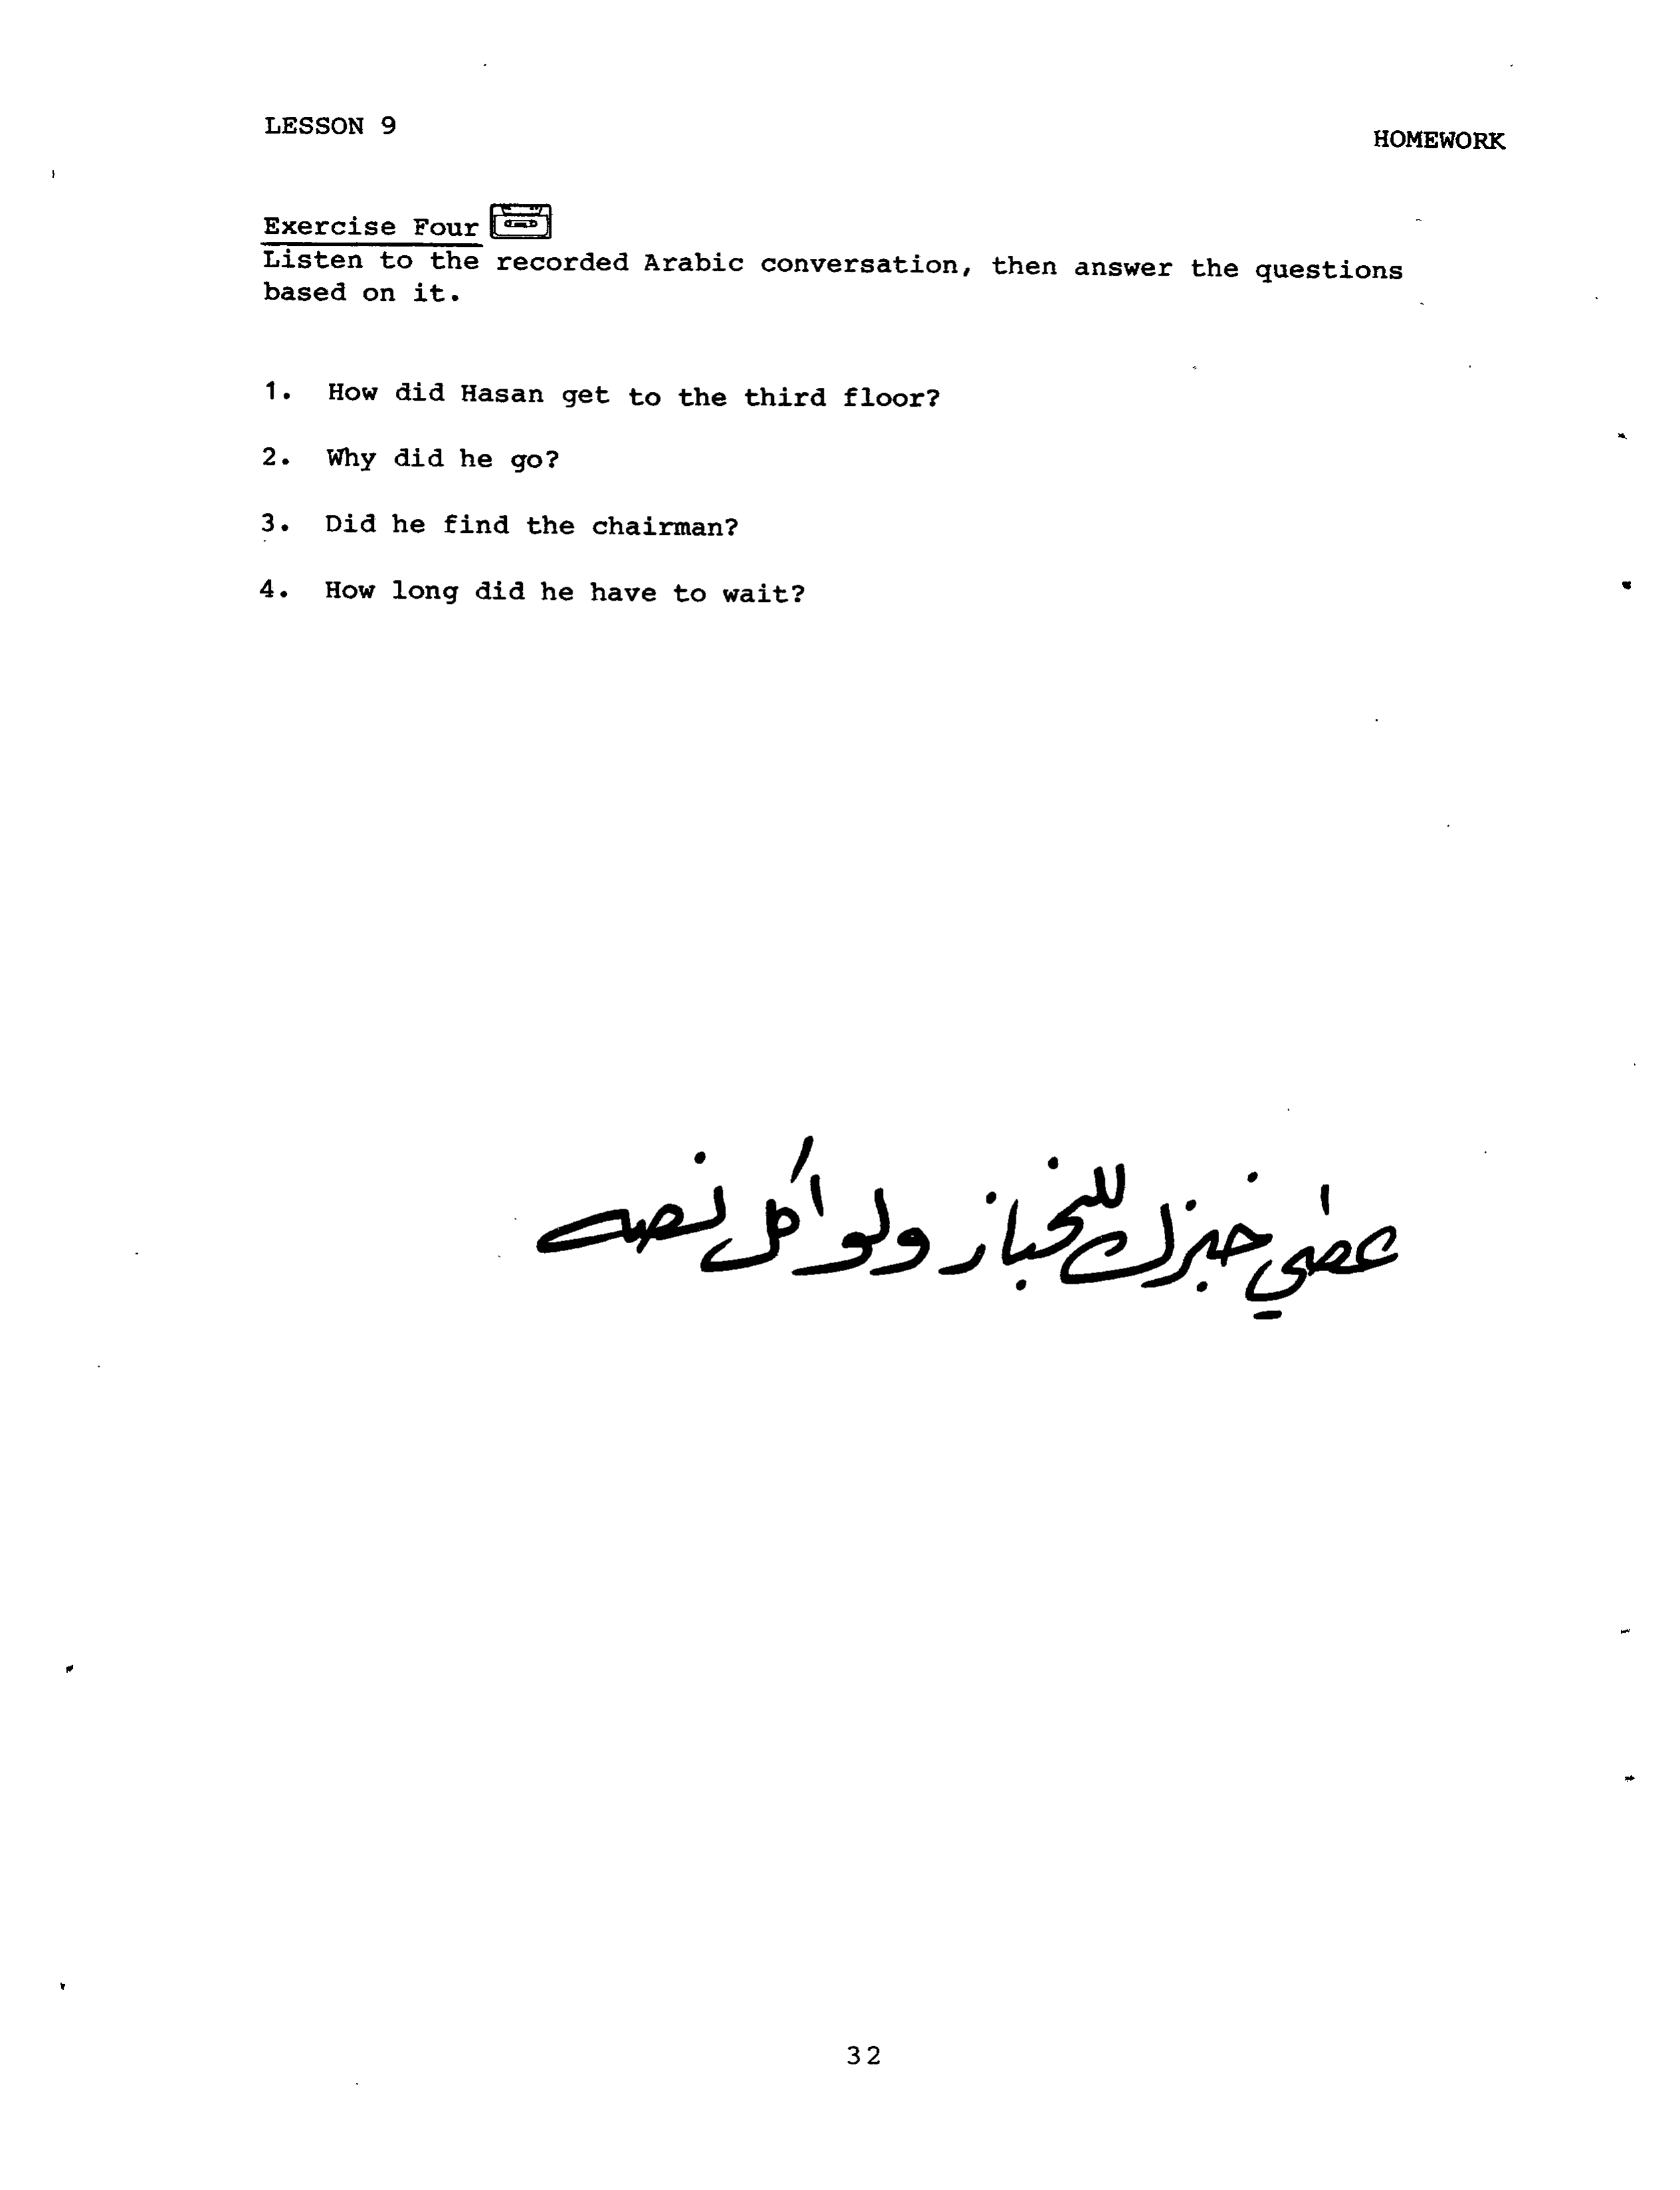 LESSON 9
HOMEWORK
Exercise Four
Listen to the recorded Arabic conversation, then answer the questions
based on it.
1. How did Hasan get to the third floor?
2. Why did he go?
3. Did he find the chairman?
4. How long did he have to wait?
عطي خبزك للخباز ولو اكل نصه
32